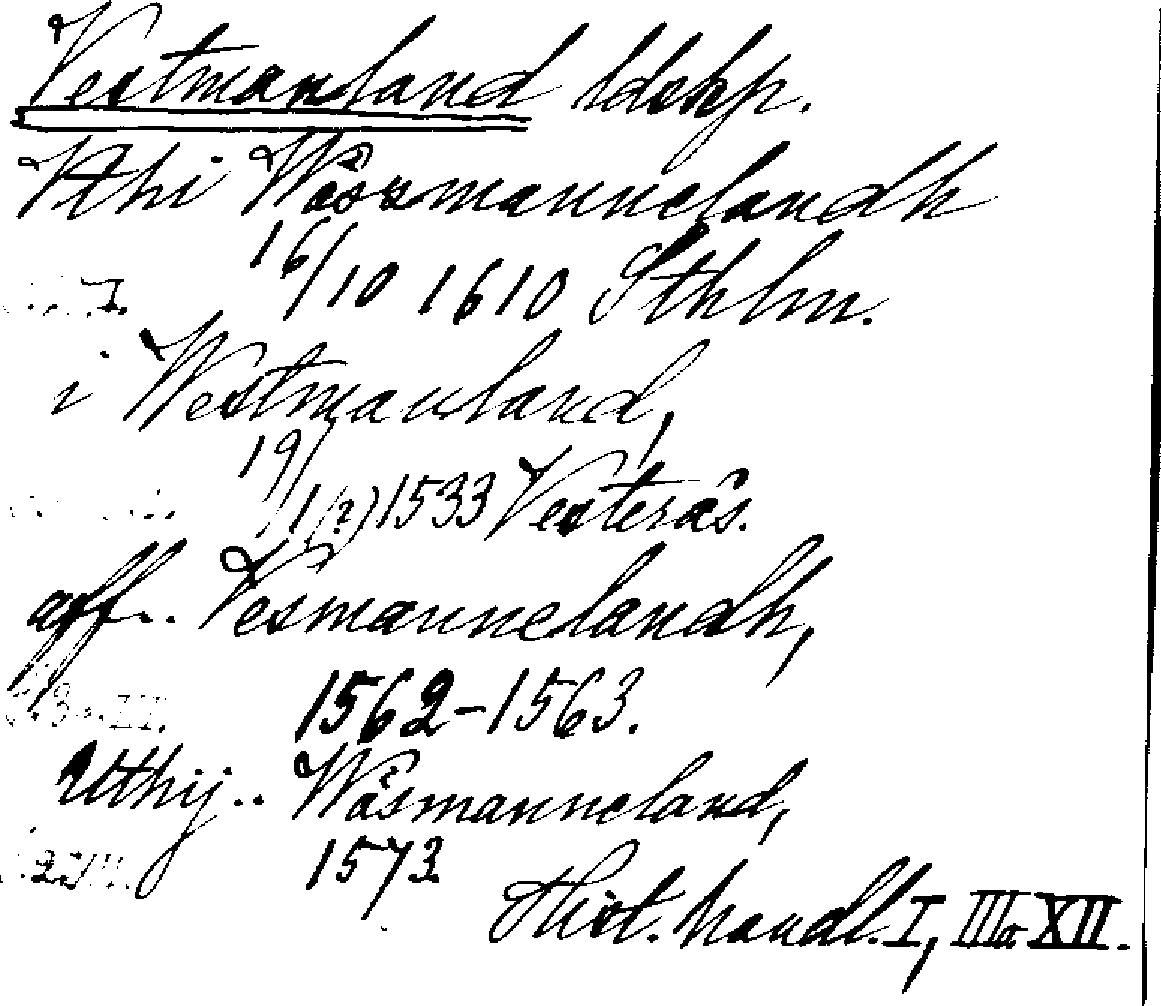 Vestmanland ldskp.
Vthi Wässmannelandh
16/10 1610 Sthlm.
I.
i Westmanland,
19/1(?) 1533 Vesterås.
aff.. Vesmannelandh,
1562-1563.
3 III.
Utthij.. Wäsmanneland,
1573.
Hist. handl. I, III o XII.